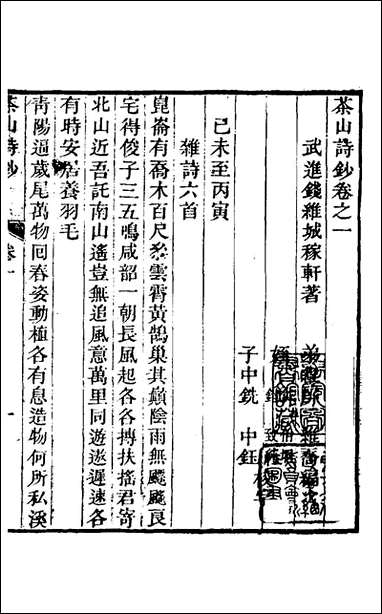 茶山詩鈔卷之一
武進錢維城稼軒著
弟維喬
子中銑 中鈺 校
己未至丙寅
雜詩六首
崑崙有喬木百尺參雲霄黃鵠巢其巔陰雨無飄颻良
宅得俊子三五鳴咸韶一朝長風起各各摶扶搖君寄
北山近吾託南山遙豈無追風意萬里同遊遨遲速各
有時安居養羽毛
青陽逼歲尾萬物回春姿動植各有息造物何所私溪
茶山詩鈔 卷一 一